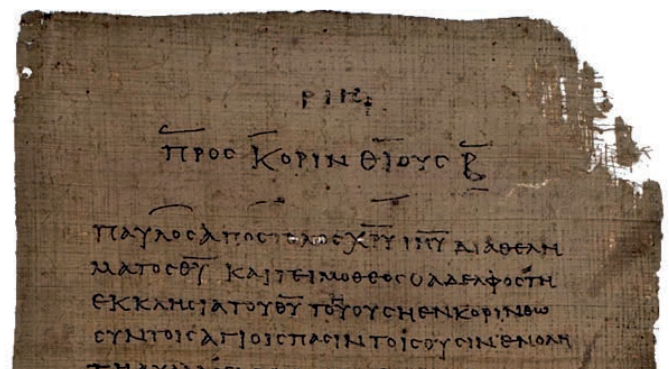 ΡΙΗ
ΠΡΟΣ ΚΟΡΙΝΘΙΟΥΣ Β̅
ΠΑΥΛΟΣ ΑΠΟΣΤΟΛΟΣ Χ̅Ρ̅Υ̅ Ι̅Η̅Υ̅ ΔΙΑ ΘΕΛΗ
ΜΑΤΟΣ Θ̅Υ̅ ΚΑΙ ΤΕΙΜΟΘΕΟΣ Ο ΑΔΕΛΦΟΣ ΤΗ
ΕΚΚΛΗΣΙΑ ΤΟΥ Θ̅Υ̅ ΤΟΥΟΥΣΗ ΕΝ ΚΟΡΙΝΘΩ
ΣΥΝ ΤΟΙΣ ΑΓΙΟΙΣ ΠΑΣΙΝ ΤΟΙΣ ΟΥΣΙΝ ΕΝ ΟΛΗ